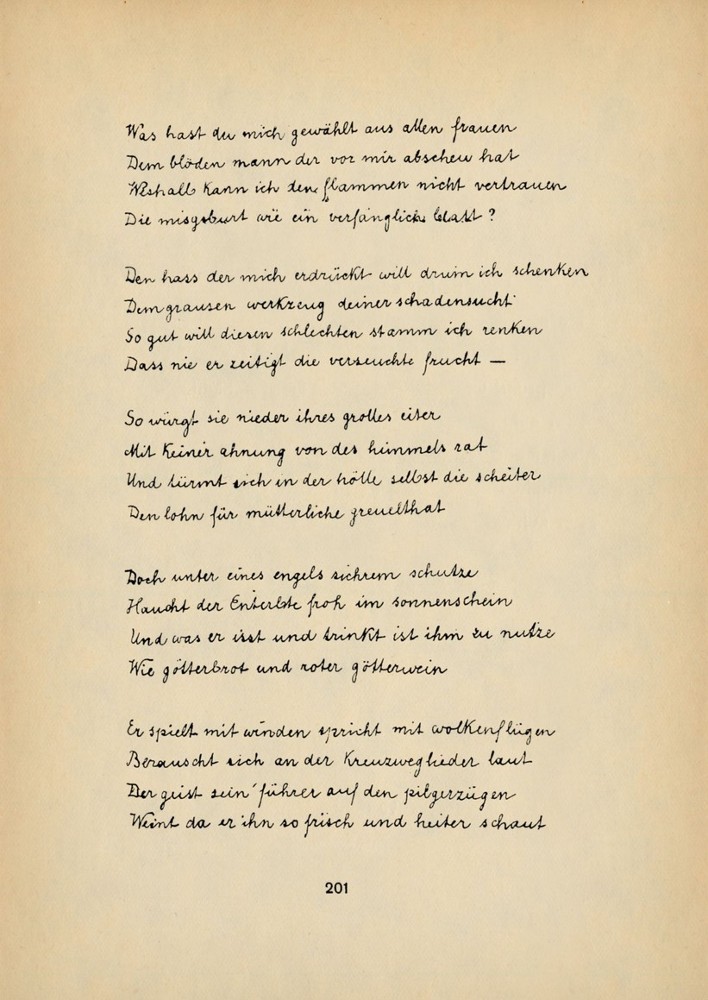 Was hast du mich gewählt aus allen frauen
Dem blöden mann der vor mir abscheu hat
Weshalb kann ich den flammen nicht vertrauen
Die misgeburt wie ein verfänglich blatt?
Den hass der mich erdrückt will drum ich schenken
Dem grausen werkzeug deiner schadensucht
So gut will diesen schlechten stamm ich renken
Dass nie er zeitigt die verseuchte frucht —
So würgt sie nieder ihres grolles eiter
Mit keiner ahnung von des himmels rat
Und türmt sich in der hölle selbst die scheiter
Den lohn für mütterliche greuelthat
Doch unter eines engels sichrem schutze
Haucht der Enterbte froh im sonnenschein
Und was er isst und trinkt ist ihm zu nutze
Wie götterbrot und roter götterwein
Er spielt mit winden spricht mit wolkenflügen
Berauscht sich an der Kreuzweglieder laut
Der geist sein führer auf den pilgerzügen
Weint da er ihn so frisch und heiter schaut
201